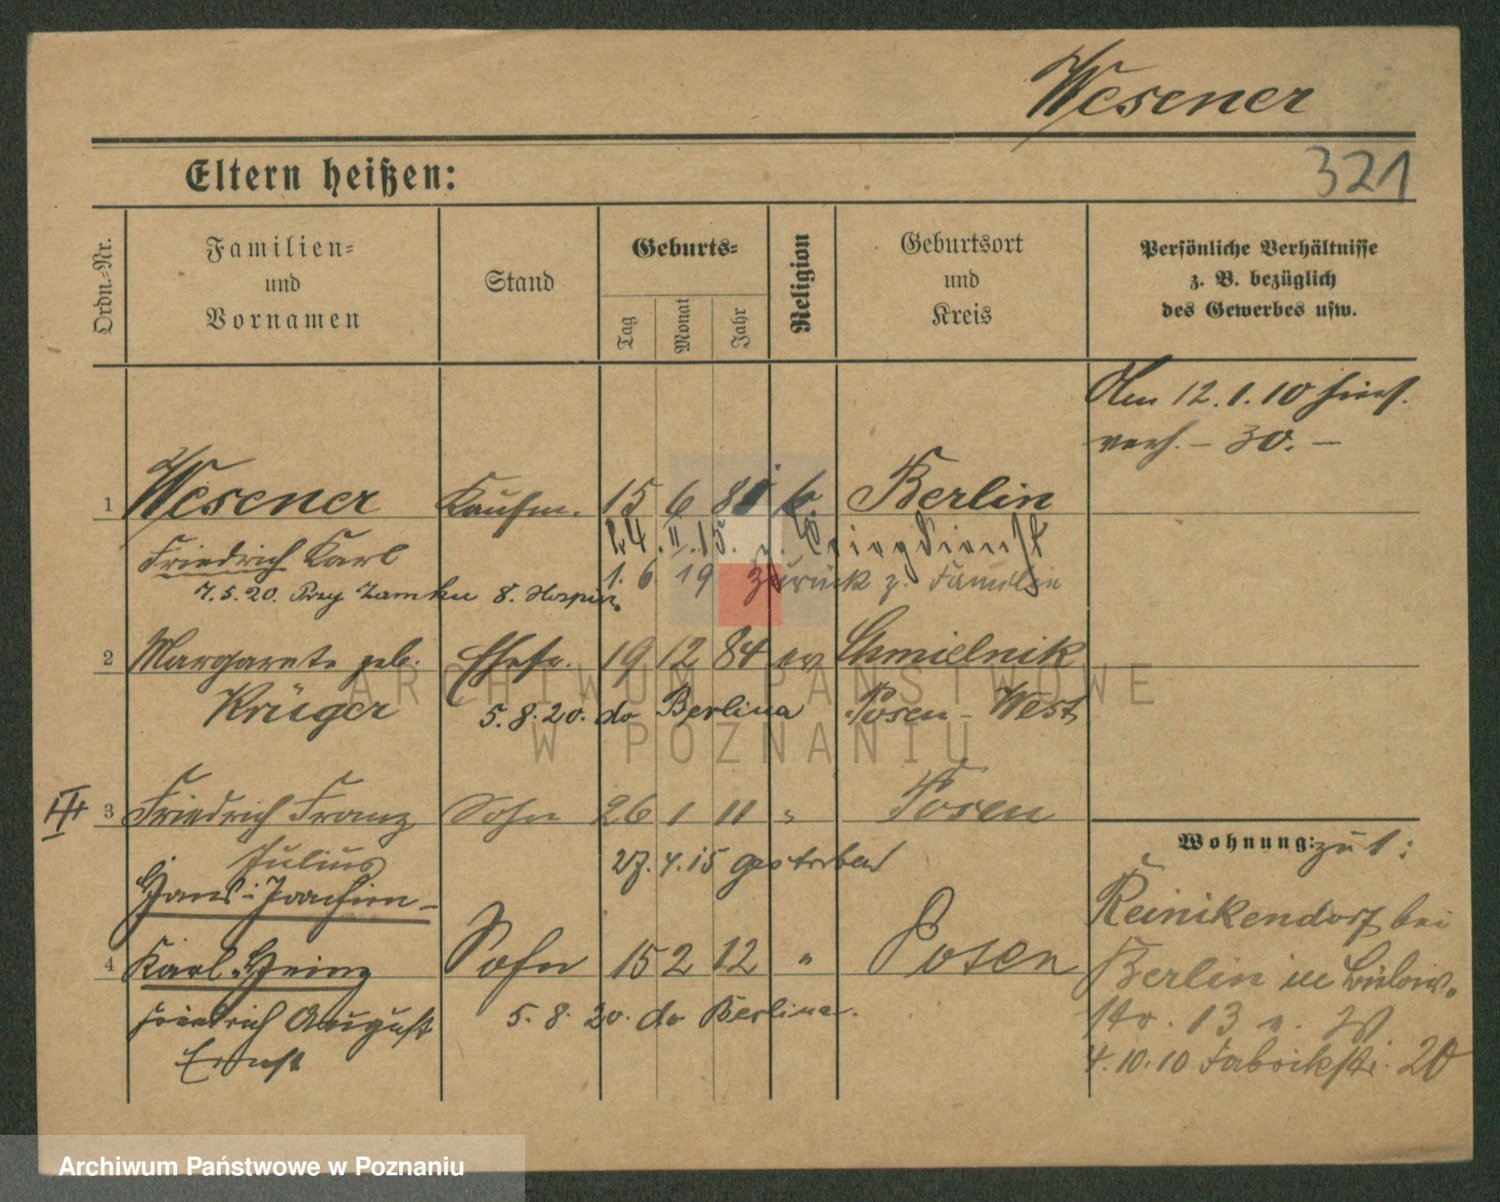 Wesener
321
Eltern heißen:
Ordn.-Nr.
Familien-
und
Vornamen
Stand
Geburts-
Tag
Monat
Jahr
Religion
Geburtsort
und
Kreis
Persönliche Verhältnisse
z. B. bezüglich
des Gewerbes usw.
Am 12.1.10 hier
verh. – 30. –
1 Wesener Kaufm. 15 6 81 Berlin
Friedrich Karl 24.II.15. z. Kriegsdienst
1. 6. 19 zurück z. Familie
7.5.20. Przy Zamku 8.
2 Margarete geb. Ehefr. 19 12 84 ev Chmielnik
Krüger 5.8.20. do Berlina Posen-West
III 3 Friedrich Franz Sohn 26 1 11 " Posen
Julius 27.4.15 gestorben
Hans-Joachim-
4 Karl-Heinz Sohn 15 2 12 " Posen
Friedrich August 5. 8. 20. do Berlina.
Ernst
Wohnung: zu 1:
Reinikendorf bei
Berlin in Bülow-
str. 13
4.10.10 Fabrikstr. 20
ARCHIWUM PAŃSTWOWE
W POZNANIU
Archiwum Państwowe w Poznaniu